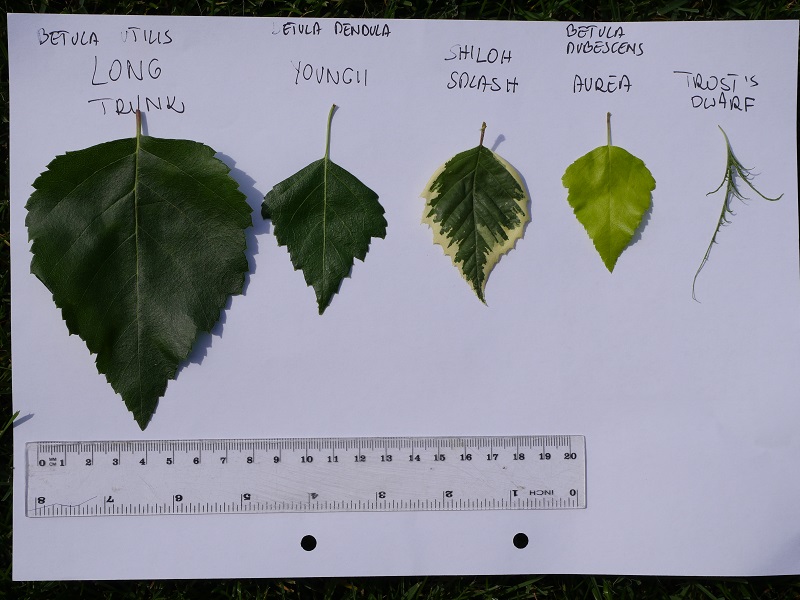 BETULA UTILIS
LONG
TRUNK
BETULA PENDULA
YOUNGII
SHILOH
SPLASH
BETULA
PUBESCENS
AUREA
TROST'S
DWARF
0 MM CM 1 2 3 4 5 6 7 8 9 10 11 12 13 14 15 16 17 18 19 20
8 7 6 5 4 3 2 1 INCH 0